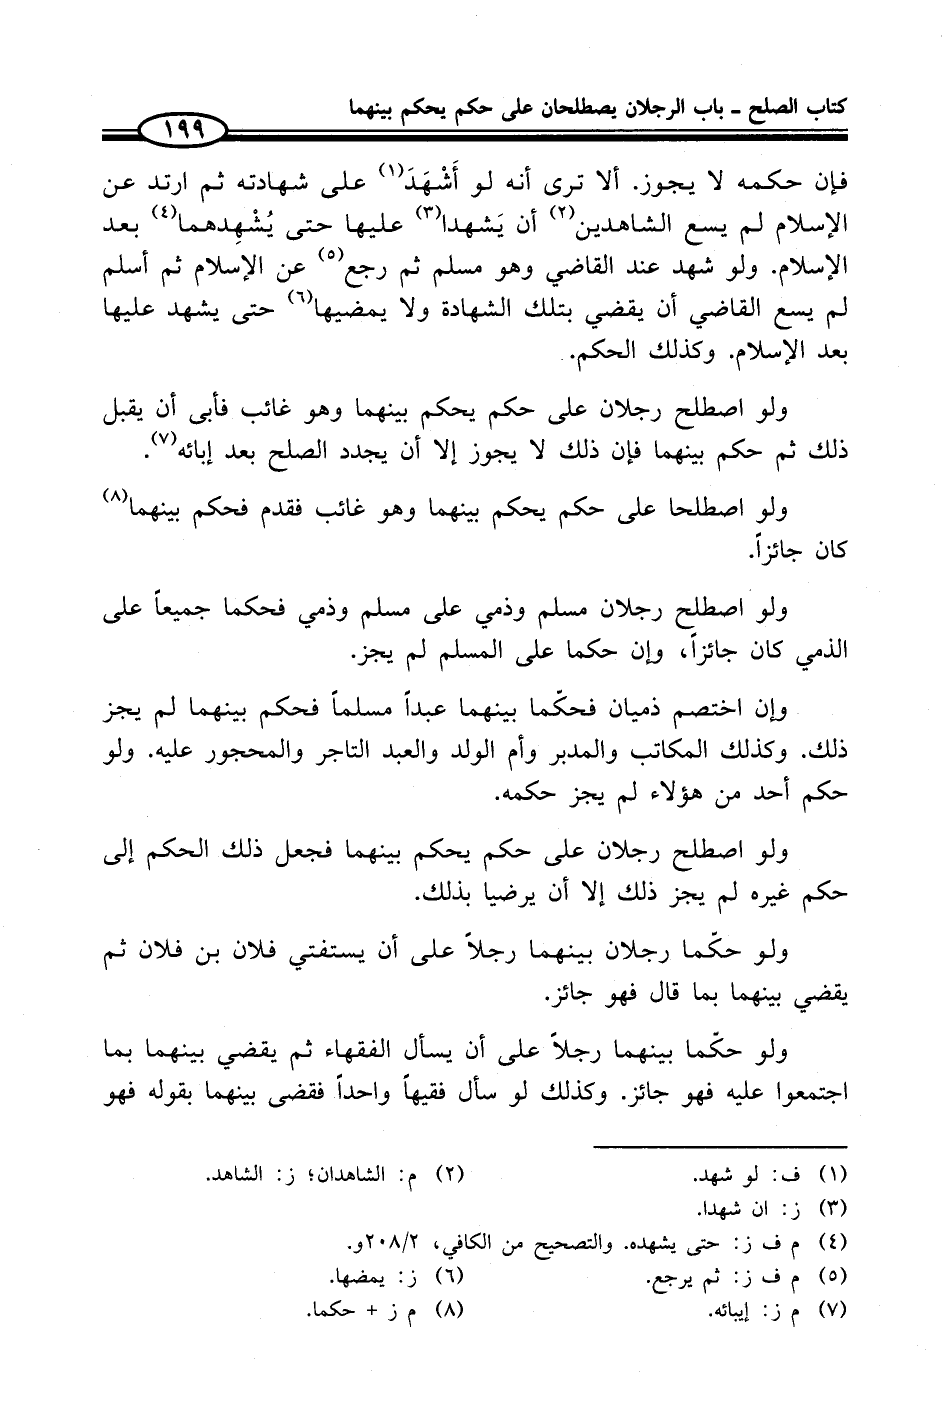 كتاب الصلح ـ باب الرجلان يصطلحان على حكم يحكم بينهما
١٩٩
فإن حكمه لا يجوز. ألا ترى أنه لو أَشْهَدَ(١) على شهادته ثم ارتد عن
الإسلام لم يسع الشاهدين(٢) أن يَشهدا(٣) عليها حتى يُشْهِدهما(٤) بعد
الإسلام. ولو شهد عند القاضي وهو مسلم ثم رجع(٥) عن الإسلام ثم أسلم
لم يسع القاضي أن يقضي بتلك الشهادة ولا يمضيها(٦) حتى يشهد عليها
بعد الإسلام. وكذلك الحكم.
ولو اصطلح رجلان على حكم يحكم بينهما وهو غائب فأبى أن يقبل
ذلك ثم حكم بينهما فإن ذلك لا يجوز إلا أن يجدد الصلح بعد إبائه(٧).
ولو اصطلحا على حكم يحكم بينهما وهو غائب فقدم فحكم بينهما(٨)
كان جائزاً.
ولو اصطلح رجلان مسلم وذمي على مسلم وذمي فحكما جميعاً على
الذمي كان جائزاً، وإن حكما على المسلم لم يجز.
وإن اختصم ذميان فحكّما بينهما عبداً مسلماً فحكم بينهما لم يجز
ذلك. وكذلك المكاتب والمدبر وأم الولد والعبد التاجر والمحجور عليه. ولو
حكم أحد من هؤلاء لم يجز حكمه.
ولو اصطلح رجلان على حكم يحكم بينهما فجعل ذلك الحكم إلى
حكم غيره لم يجز ذلك إلا أن يرضيا بذلك.
ولو حكّما رجلان بينهما رجلاً على أن يستفتي فلان بن فلان ثم
يقضي بينهما بما قال فهو جائز.
ولو حكّما بينهما رجلاً على أن يسأل الفقهاء ثم يقضي بينهما بما
اجتمعوا عليه فهو جائز. وكذلك لو سأل فقيهاً واحداً فقضى بينهما بقوله فهو
(١) ف: لو شهد. (٢) م: الشاهدان؛ ز: الشاهد.
(٣) ز: ان شهدا.
(٤) م ف ز: حتى يشهده. والتصحيح من الكافي، ٢٠٨/٢و.
(٥) م ف ز: ثم يرجع. (٦) ز: يمضها.
(٧) م ز: إيبائه. (٨) م ز + حكما.